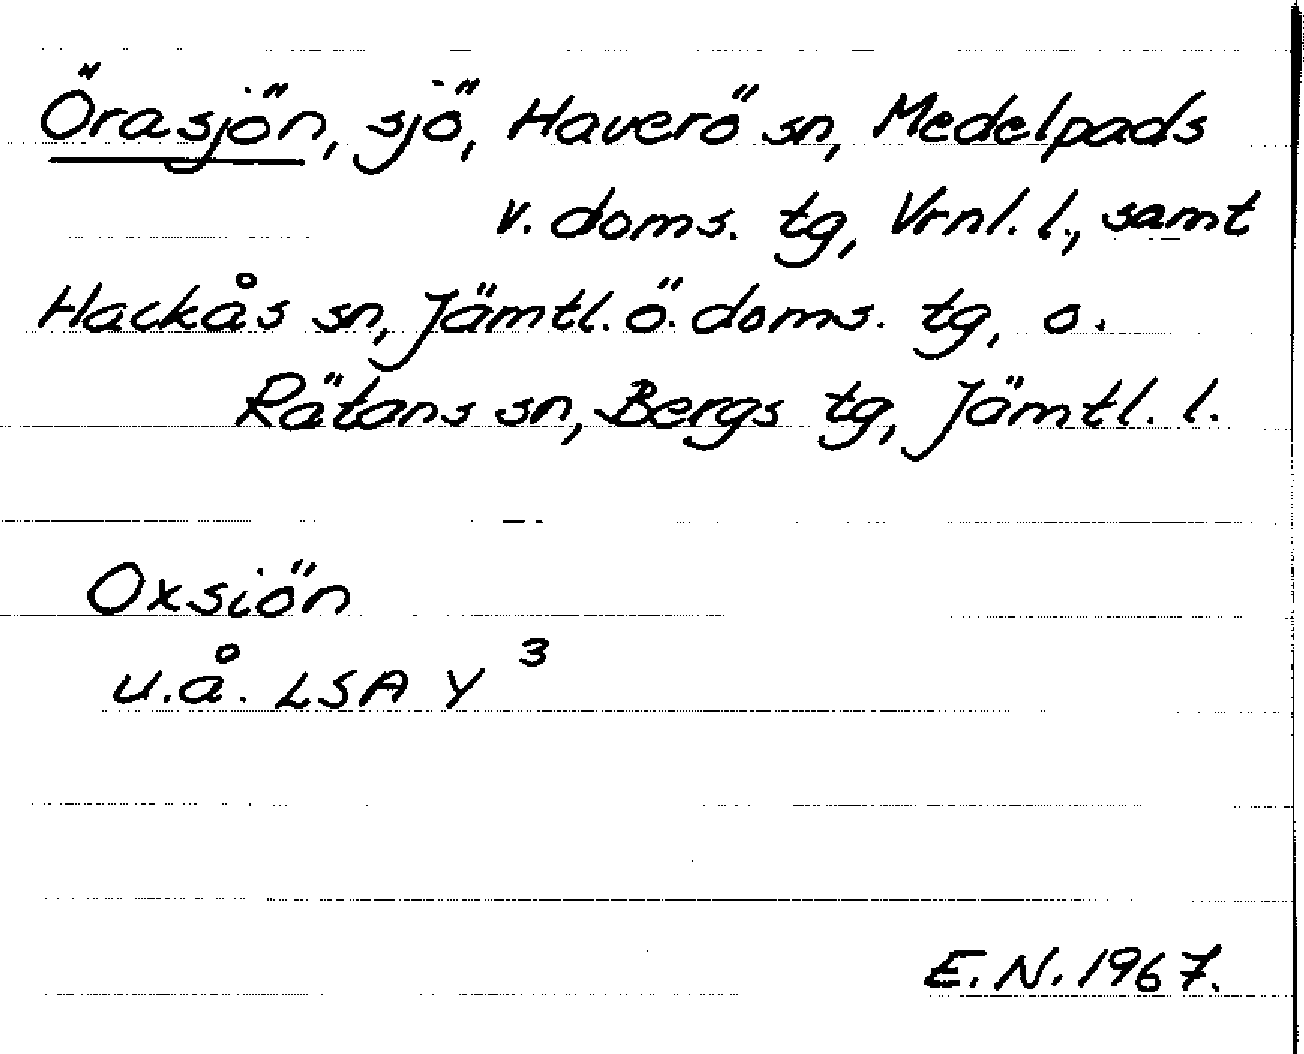 Örasjön, sjö, Haverö sn, Medelpads
v. doms. tg, Vrnl. l., samt
Hackås sn, Jämtl. ö. doms. tg, o.
Rätans sn, Bergs tg, Jämtl. l.
Oxsiön
u.å. LSA Y 3
E.N. 1967.